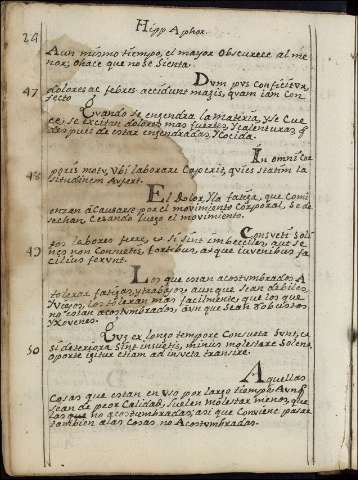 24
Hipp Aphor.
Aun mismo tiempo, el mayor Obscurece al me
nor, Ohace que no se Sienta.
Dum pus Conficitur,
47 dolores ac febres accidunt magis, quam iam Con
fecto
Quando se engendra la Materia, y Se Cue
ce, se excitan dolores mas fuertes, y Calenturas q̃
despues de estar engendrada, y Cocida.
In omni Cor
48 poris motu, Ubi laborare Coeperit, quies statim la
situdinem Aufert.
El dolor, y la fatiga, que Comi
enzan à Causarse por el movimiento Corporal, Se de
sechan, Cesando luego el movimiento.
Consueti Soli
49 tos labores ferre, Si Sint imbecilles, aut Se
nes non Consuetis, fortibus, atque iuvenibus fa
cilius ferunt.
Los que estan acostumbrados A
tolerar fatigas, y trabajos, aunque Sean debiles,
y Viejos, los toleran mas facilmente, que los que
no estan acostumbrados, aunque Sean robustos
y Jovenes.
Quæ ex longo tempore Consueta Sunt, et
50 si deteriora Sint insuetis, minus molestare Solent,
oportet igitur etiam ad insueta transire.
Aquellas
Cosas que estan en Uso por largo tiempo, Aunq̃
Sean de peor Calidad, Suelen molestar menos, que
las que no acostumbradas; asi que Conviene pasar
tambien alas Cosas no Acostumbradas.